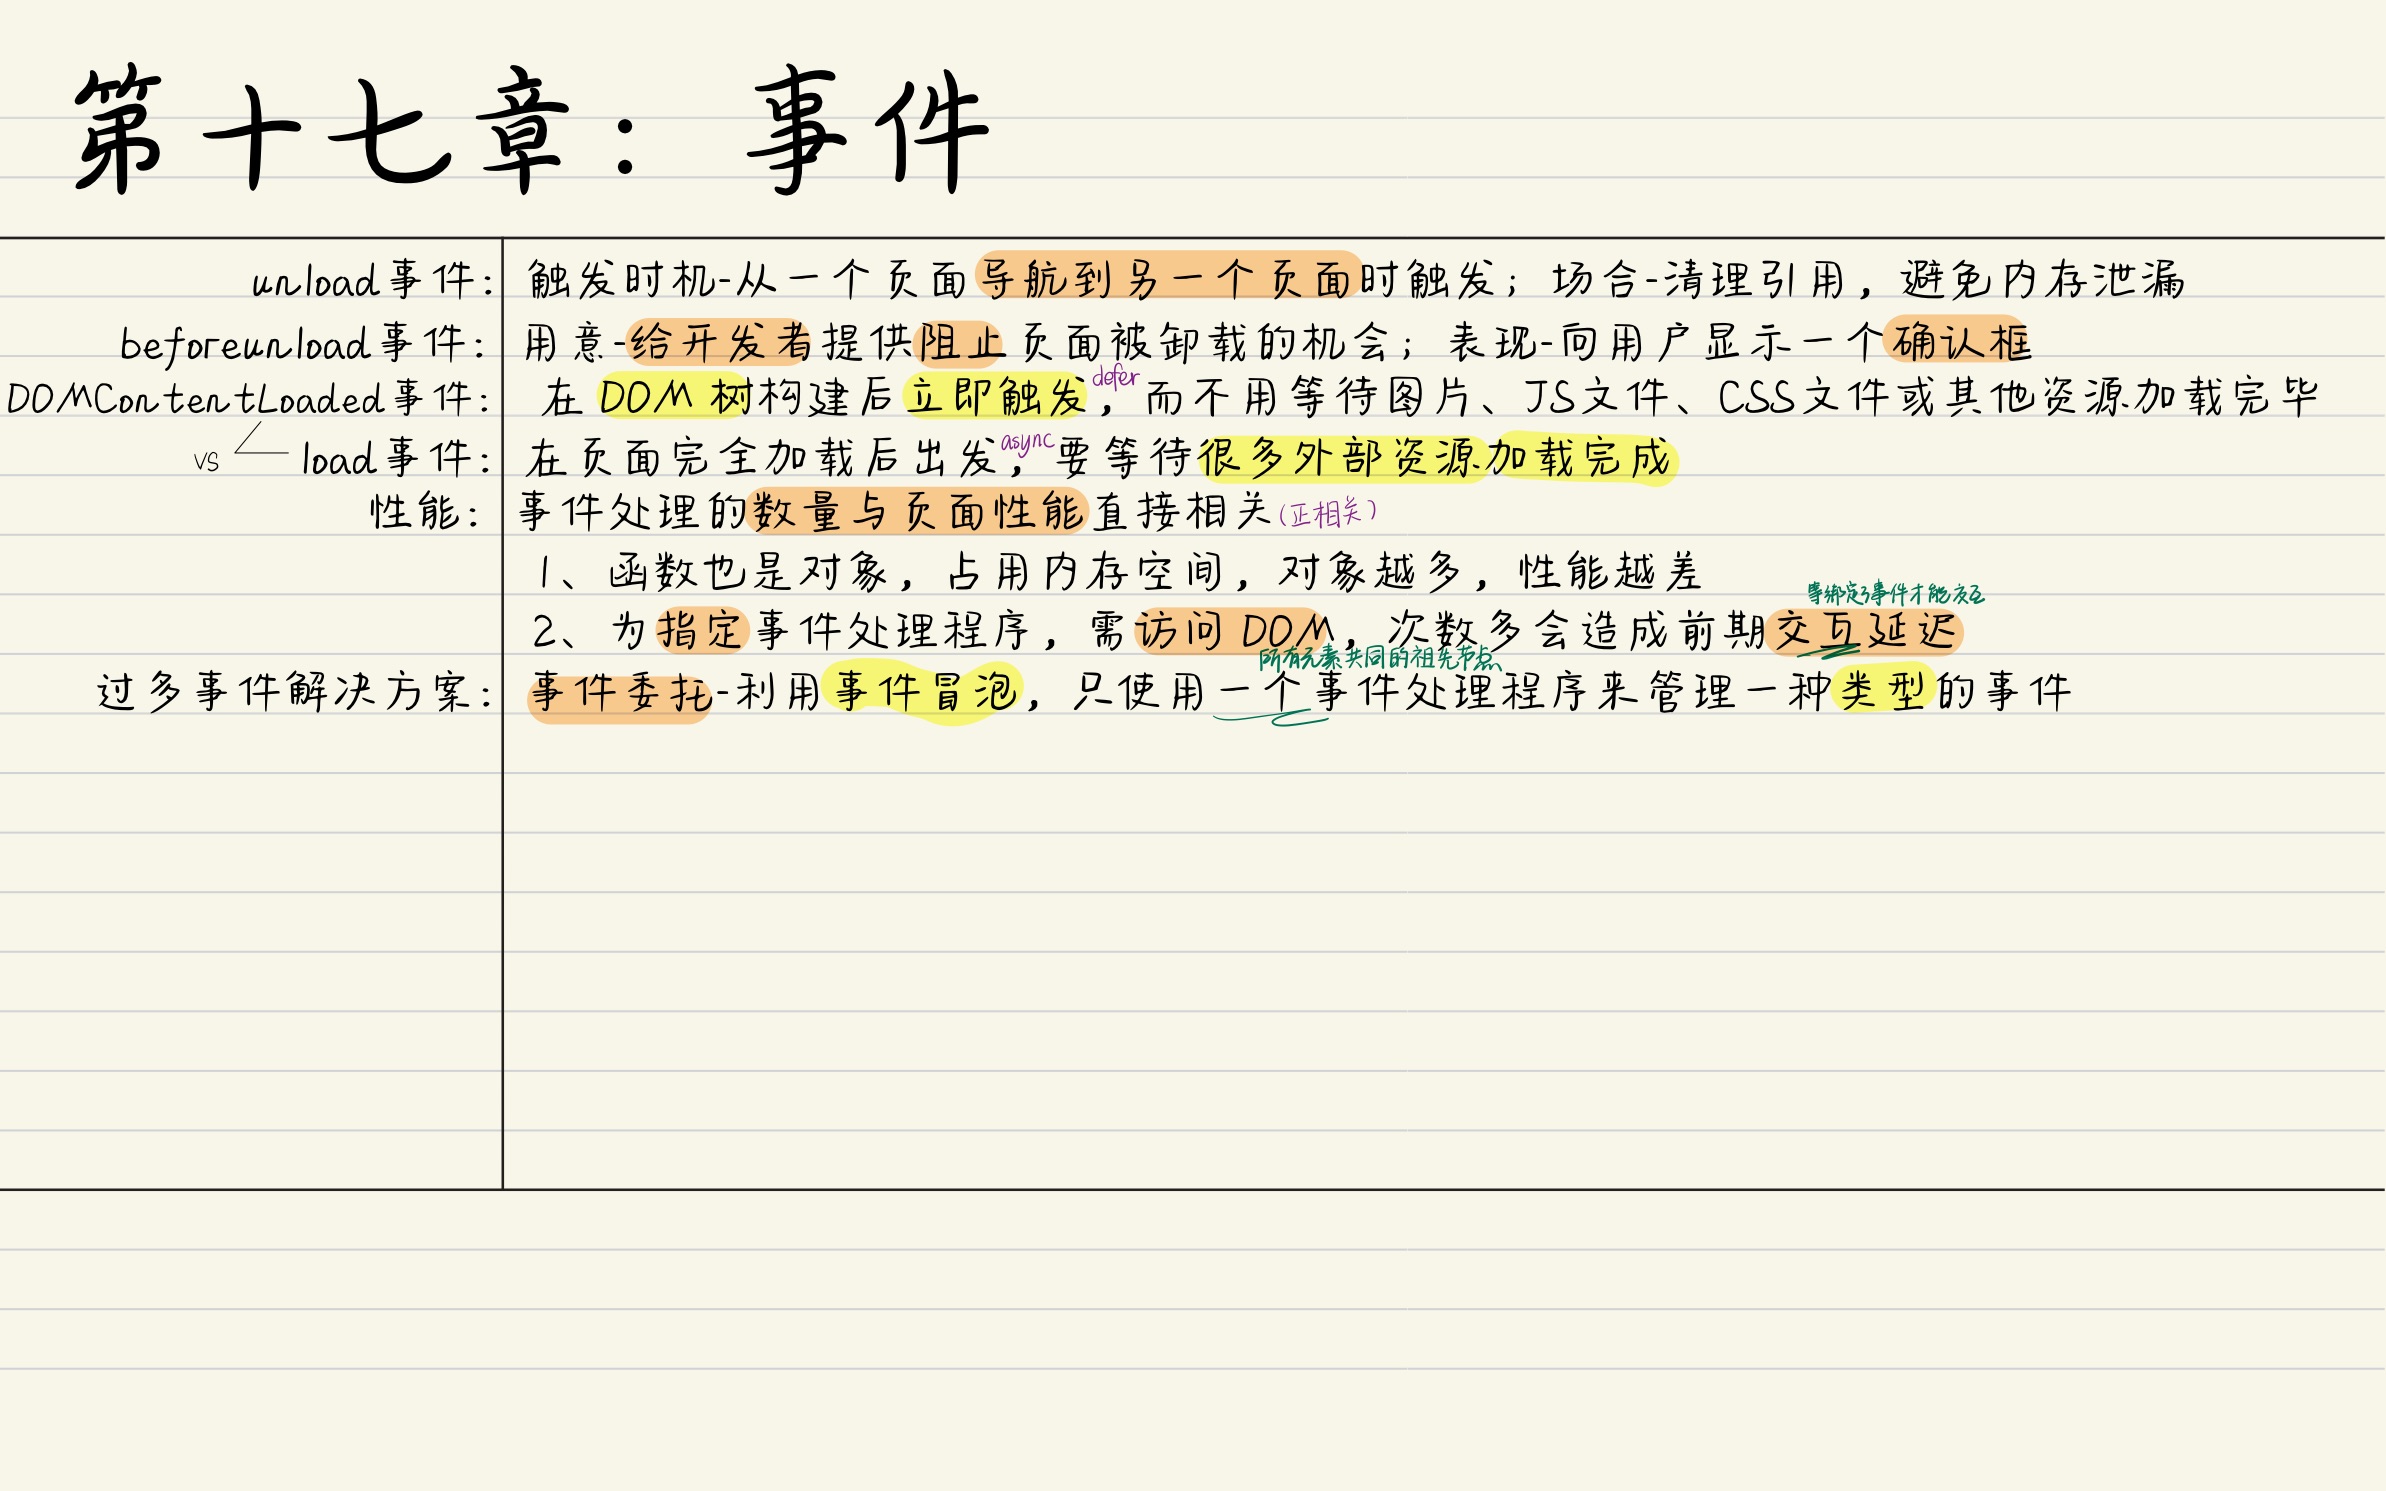 第十七章：事件
unload事件：触发时机-从一个页面导航到另一个页面时触发；场合-清理引用，避免内存泄漏
beforeunload事件：用意-给开发者提供阻止页面被卸载的机会；表现-向用户显示一个确认框
defer
DOMContentLoaded事件：在DOM树构建后立即触发，而不用等待图片、JS文件、CSS文件或其他资源加载完毕
async
vs load事件：在页面完全加载后出发，要等待很多外部资源加载完成
性能：事件处理的数量与页面性能直接相关(正相关)
1、函数也是对象，占用内存空间，对象越多，性能越差
等绑定了事件才能交互
2、为指定事件处理程序，需访问DOM，次数多会造成前期交互延迟
所有元素共同的祖先节点
过多事件解决方案：事件委托-利用事件冒泡，只使用一个事件处理程序来管理一种类型的事件